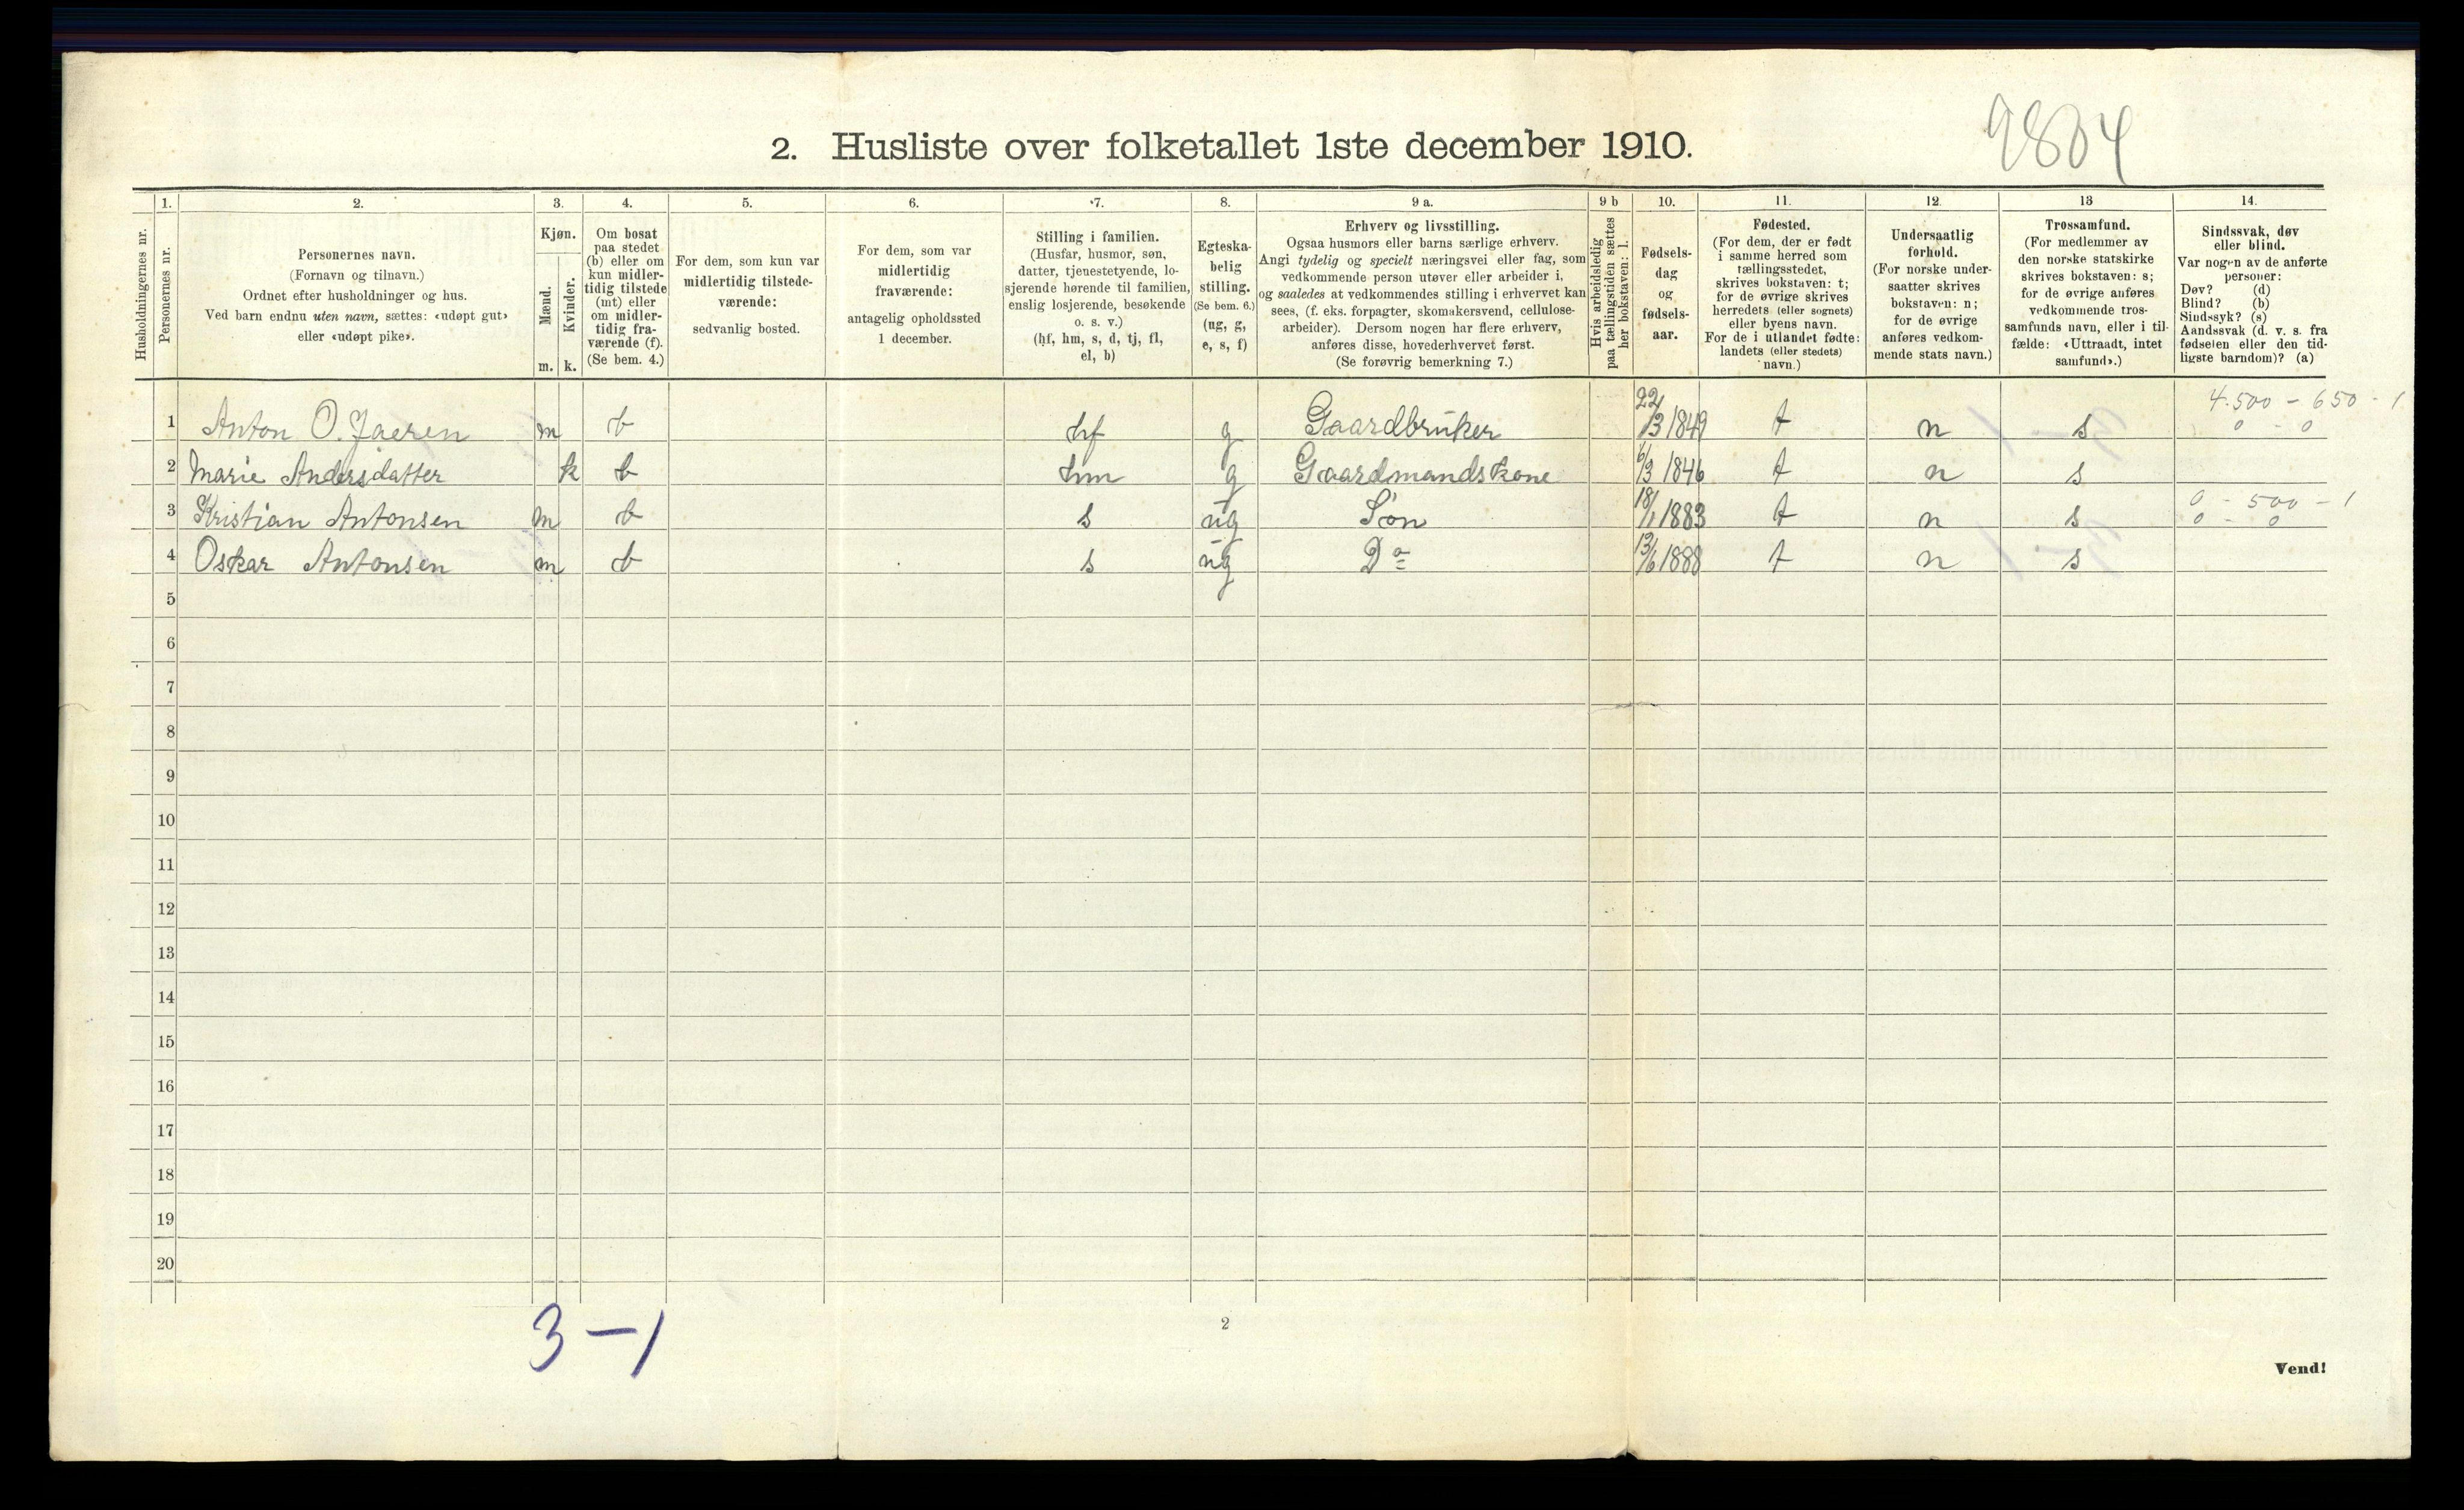 9804
2. Husliste over folketallet 1ste december 1910.
Husholdningernes nr.
1.
Personernes nr.
2.
Personernes navn.
(Fornavn og tilnavn.)
Ordnet efter husholdninger og hus.
Ved barn endnu uten navn, sættes: «udøpt gut»
eller «udøpt pike».
3.
Kjøn.
Mænd.
Kvinder.
m. k.
4.
Om bosat
paa stedet
(b) eller om
kun midler-
tidig tilstede
(mt) eller
om midler-
tidig fra-
værende (f).
(Se bem. 4.)
5.
For dem, som kun var
midlertidig tilstede-
værende:
sedvanlig bosted.
6.
For dem, som var
midlertidig
fraværende:
antagelig opholdssted
1 december.
7.
Stilling i familien.
(Husfar, husmor, søn,
datter, tjenestetyende, lo-
sjerende hørende til familien,
enslig losjerende, besøkende
o. s. v.)
(hf, hm, s, d, tj, fl,
el, b)
8.
Egteska-
belig
stilling.
(Se bem. 6.)
(ug, g,
e, s, f)
9 a.
Erhverv og livsstilling.
Ogsaa husmors eller barns særlige erhverv.
Angi tydelig og specielt næringsvei eller fag, som
vedkommende person utøver eller arbeider i,
og saaledes at vedkommendes stilling i erhvervet kan
sees, (f. eks. forpagter, skomakersvend, cellulose-
arbeider). Dersom nogen har flere erhverv,
anføres disse, hovederhvervet først.
(Se forøvrig bemerkning 7.)
9 b
Hvis arbeidsledig
paa tællingstiden sættes
her bokstaven: l.
10.
Fødsels-
dag
og
fødsels-
aar.
11.
Fødested.
(For dem, der er født
i samme herred som
tællingsstedet,
skrives bokstaven: t;
for de øvrige skrives
herredets (eller sognets)
eller byens navn.
For de i utlandet fødte:
landets (eller stedets)
navn.)
12.
Undersaatlig
forhold.
(For norske under-
saatter skrives
bokstaven: n;
for de øvrige
anføres vedkom-
mende stats navn.)
13
Trossamfund.
(For medlemmer av
den norske statskirke
skrives bokstaven: s;
for de øvrige anføres
vedkommende tros-
samfunds navn, eller i til-
fælde: «Uttraadt, intet
samfund».)
14.
Sindssvak, døv
eller blind.
Var nogen av de anførte
personer:
Døv? (d)
Blind? (b)
Sindssyk? (s)
Aandssvak (d. v. s. fra
fødselen eller den tid-
ligste barndom)? (a)
4.500 - 650 - 1
1 Anton O. Jaeren m b hf g Gaardbruker 22/3 1849 t n s 0 - 0
2 Marie Andersdatter k b hm g Gaardmandskone 6/3 1846 t n s
0 - 500 - 1
3 Kristian Antonsen m b s ug Søn 18/1 1883 t n s 0 - 0
4 Oskar Antonsen m b s ug Do 13/6 1888 t n s
5
6
7
8
9
10
11
12
13
14
15
16
17
18
19
20
3 - 1
2
Vend!